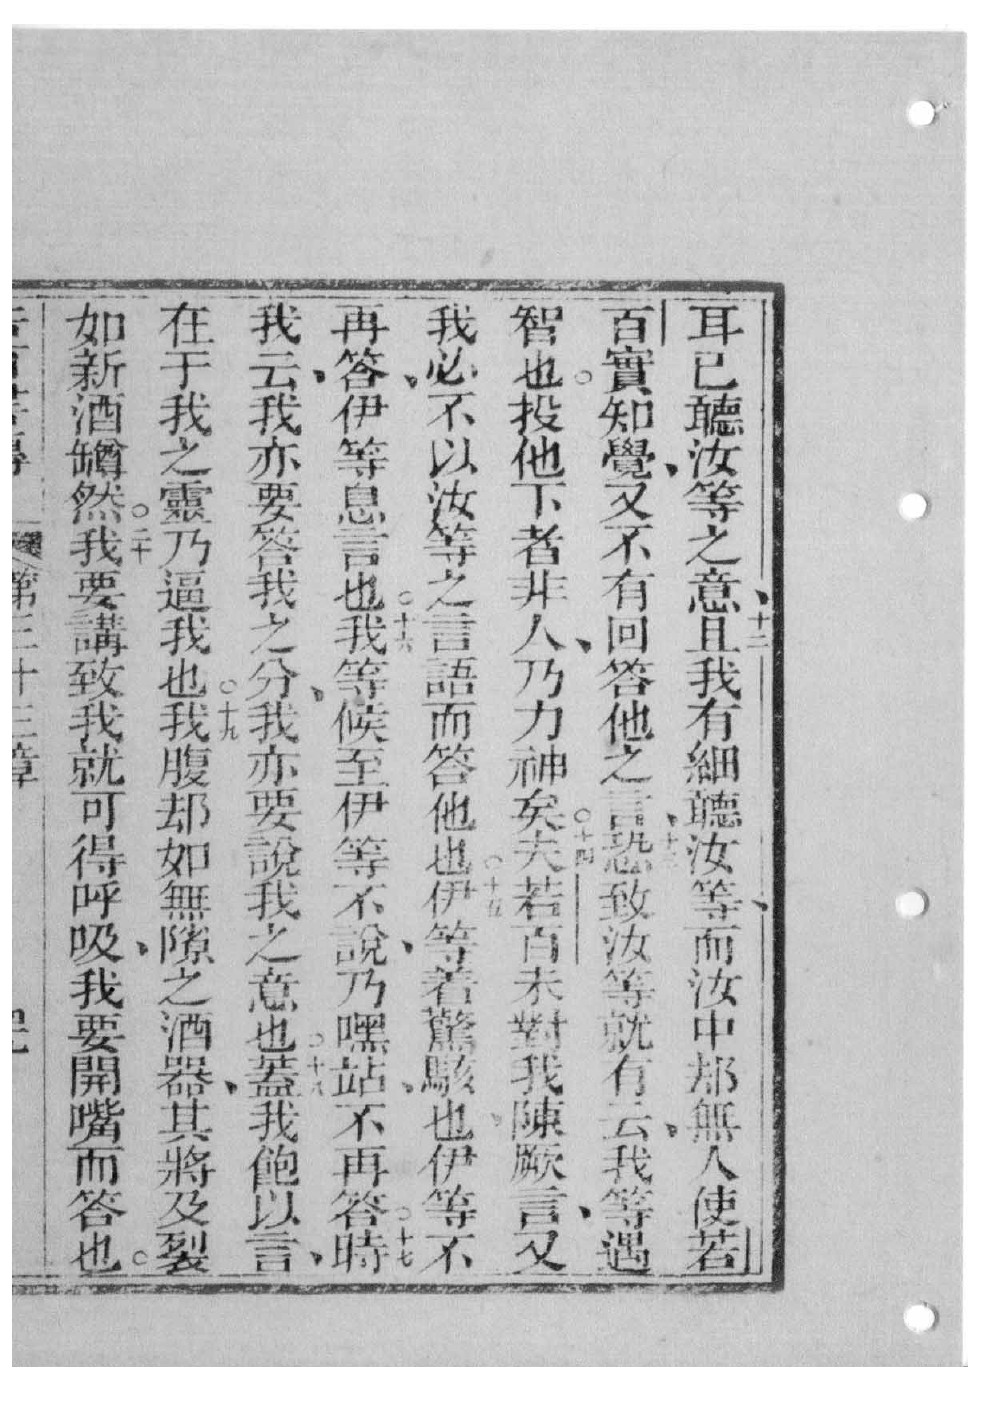 耳已聽汝等之意、十二且我有細聽汝等、而汝中却無人使若
百實知覺、又不有回答他之言、十三恐致汝等就有云、我等遇
智也。投他下者非人、乃力神矣。十四夫若百未對我陳厥言、又
我必不以汝等之言語而答他也。十五伊等着驚駭也、伊等不
再答、伊等息言也。十六我等候至伊等不說、乃嘿站、不再答。十七時
我云、我亦要答我之分、我亦要說我之意也。十八蓋我飽以言、
在于我之靈乃逼我也。十九我腹却如無隙之酒器、其將及裂
如新酒罇然。二十我要講致我就可得呼吸、我要開嘴而答也。
第三十三章